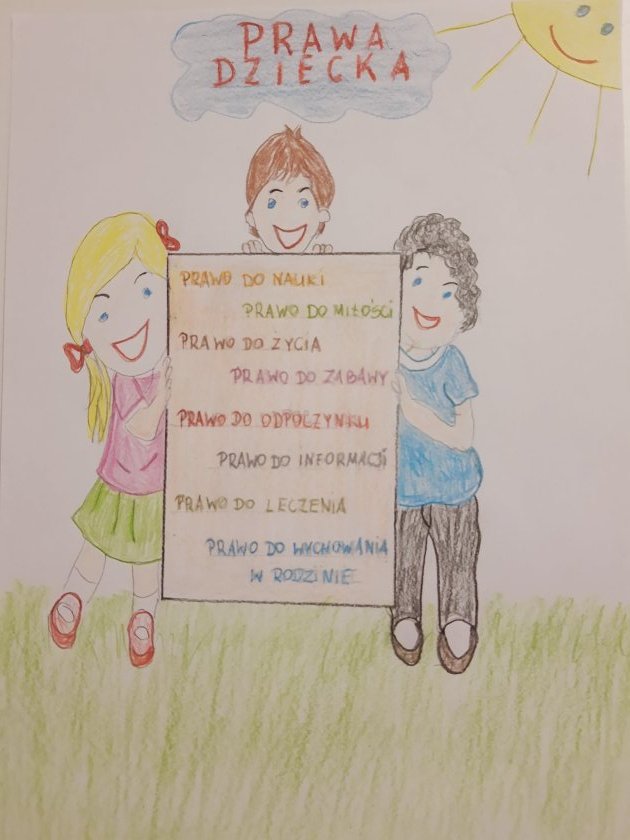 PRAWA
DZIECKA
PRAWO DO NAUKI
PRAWO DO MIŁOŚCI
PRAWO DO ŻYCIA
PRAWO DO ZABAWY
PRAWO DO ODPOCZYNKU
PRAWO DO INFORMACJI
PRAWO DO LECZENIA
PRAWO DO WYCHOWANIA
W RODZINIE